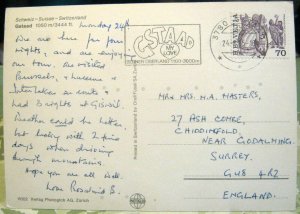 Schweiz - Suisse - Switzerland
Gstaad 1050 m/3444 ft.
Monday 24th
We are here for four
nights, and are enjoying
our tour. We visited
Brussels, & Lucerne &
Interlaken en route &
had 3 nights at Giswil.
Weather could be better,
but lucky with 2 fine
days when driving
through mountains.
Hope you are all well.
Love Rosalind B.
GSTAAD
MY
LOVE
BERNER OBERLAND 1100-3000m
3780
24.
HELVETIA
70
MR & MRS. H.A. MASTERS,
27 ASH COMBE,
CHIDDINGFOLD
NEAR GODALMING
SURREY.
GU8 4RZ
ENGLAND.
Verlag Photoglob AG, Zürich